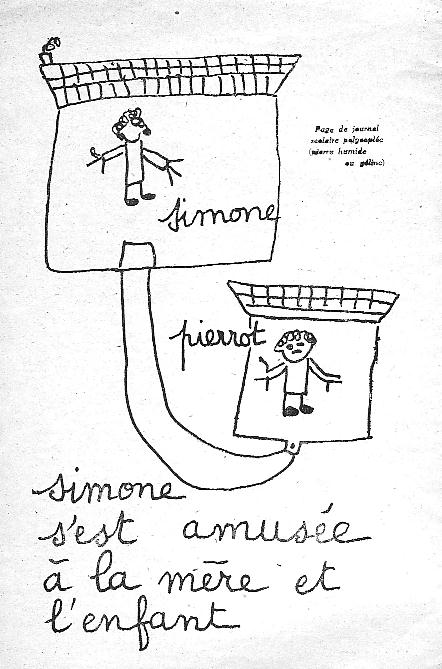 Page de journal
scolaire polycopiée
(pierre humide
ou géline)
simone
pierrot
simone
s'est amusée
à la mère et
l'enfant